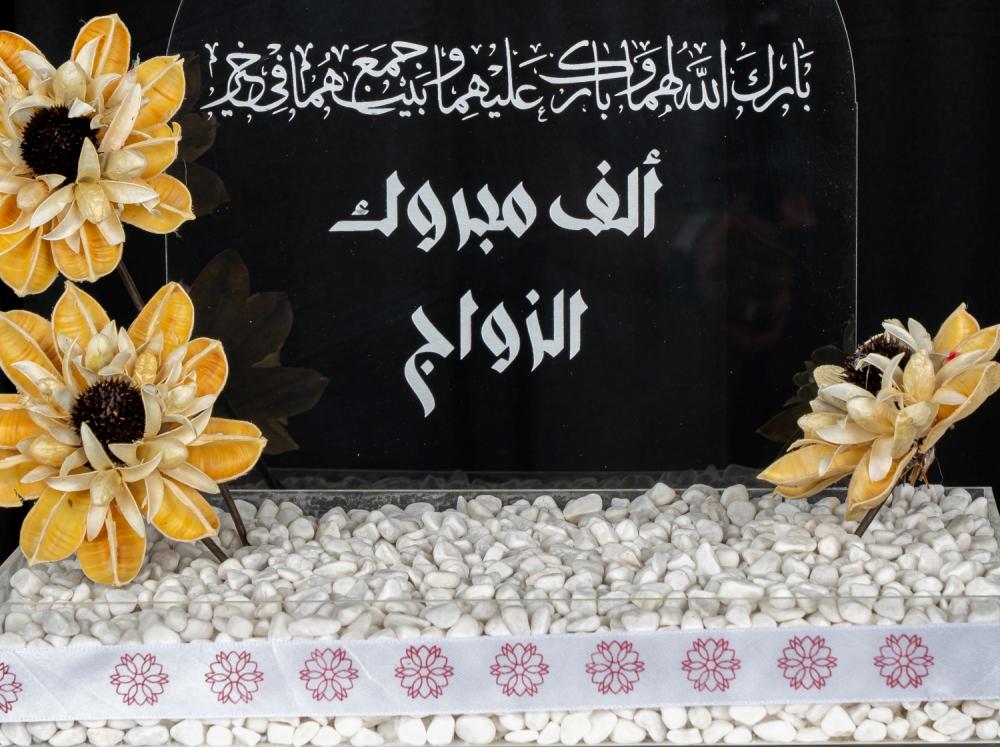 بارك الله لهما وبارك عليهما وجمع بينهما في خير
ألف مبروك
الزواج